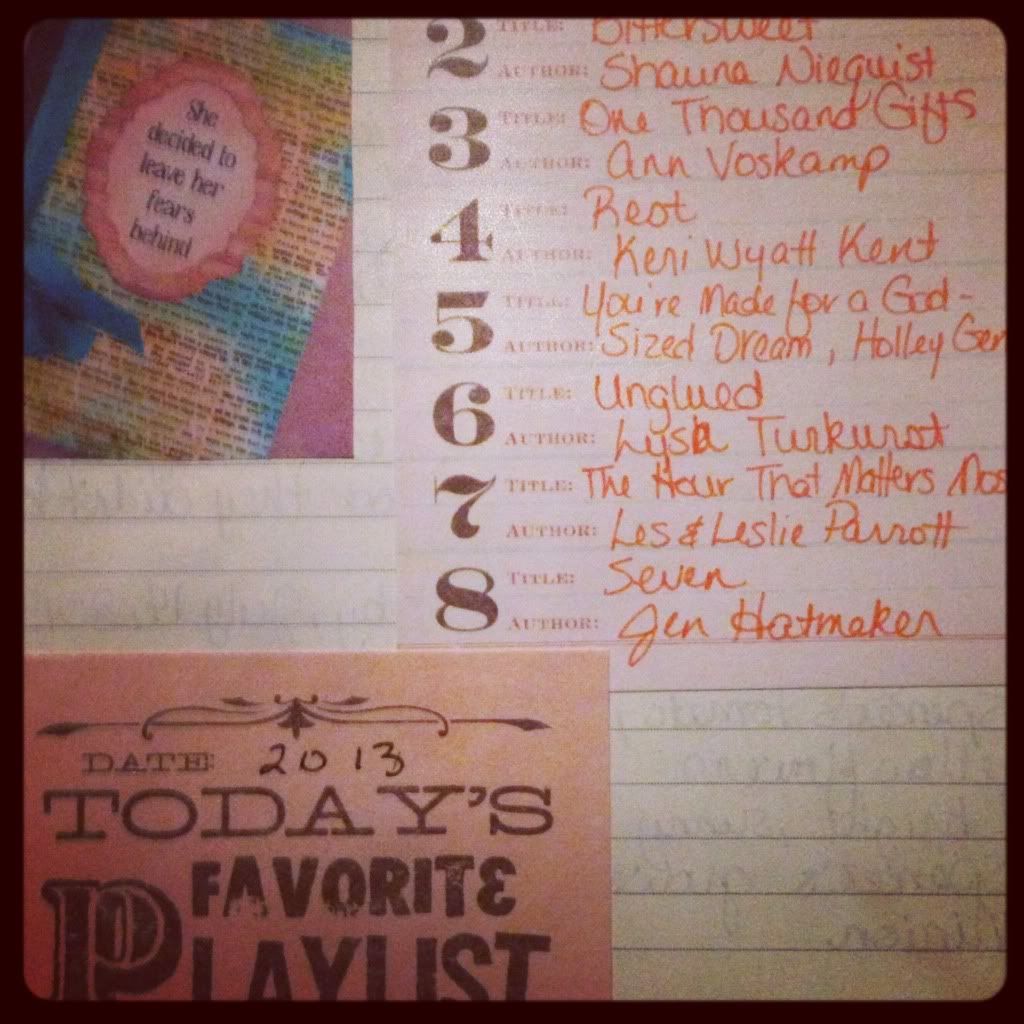 She
decided to
leave her
fears
behind
2 TITLE: Bittersweet
AUTHOR: Shauna Niequist
3 TITLE: One Thousand Gifts
AUTHOR: Ann Voskamp
4 TITLE: Rest
AUTHOR: Keri Wyatt Kent
5 TITLE: You're Made for a God-
AUTHOR: Sized Dream, Holley Ger
6 TITLE: Unglued
AUTHOR: Lysa Turkurst
7 TITLE: The Hour That Matters Mos
AUTHOR: Les & Leslie Parrott
8 TITLE: Seven
AUTHOR: Jen Hatmaker
DATE: 2013
TODAY'S
FAVORITE
PLAYLIST